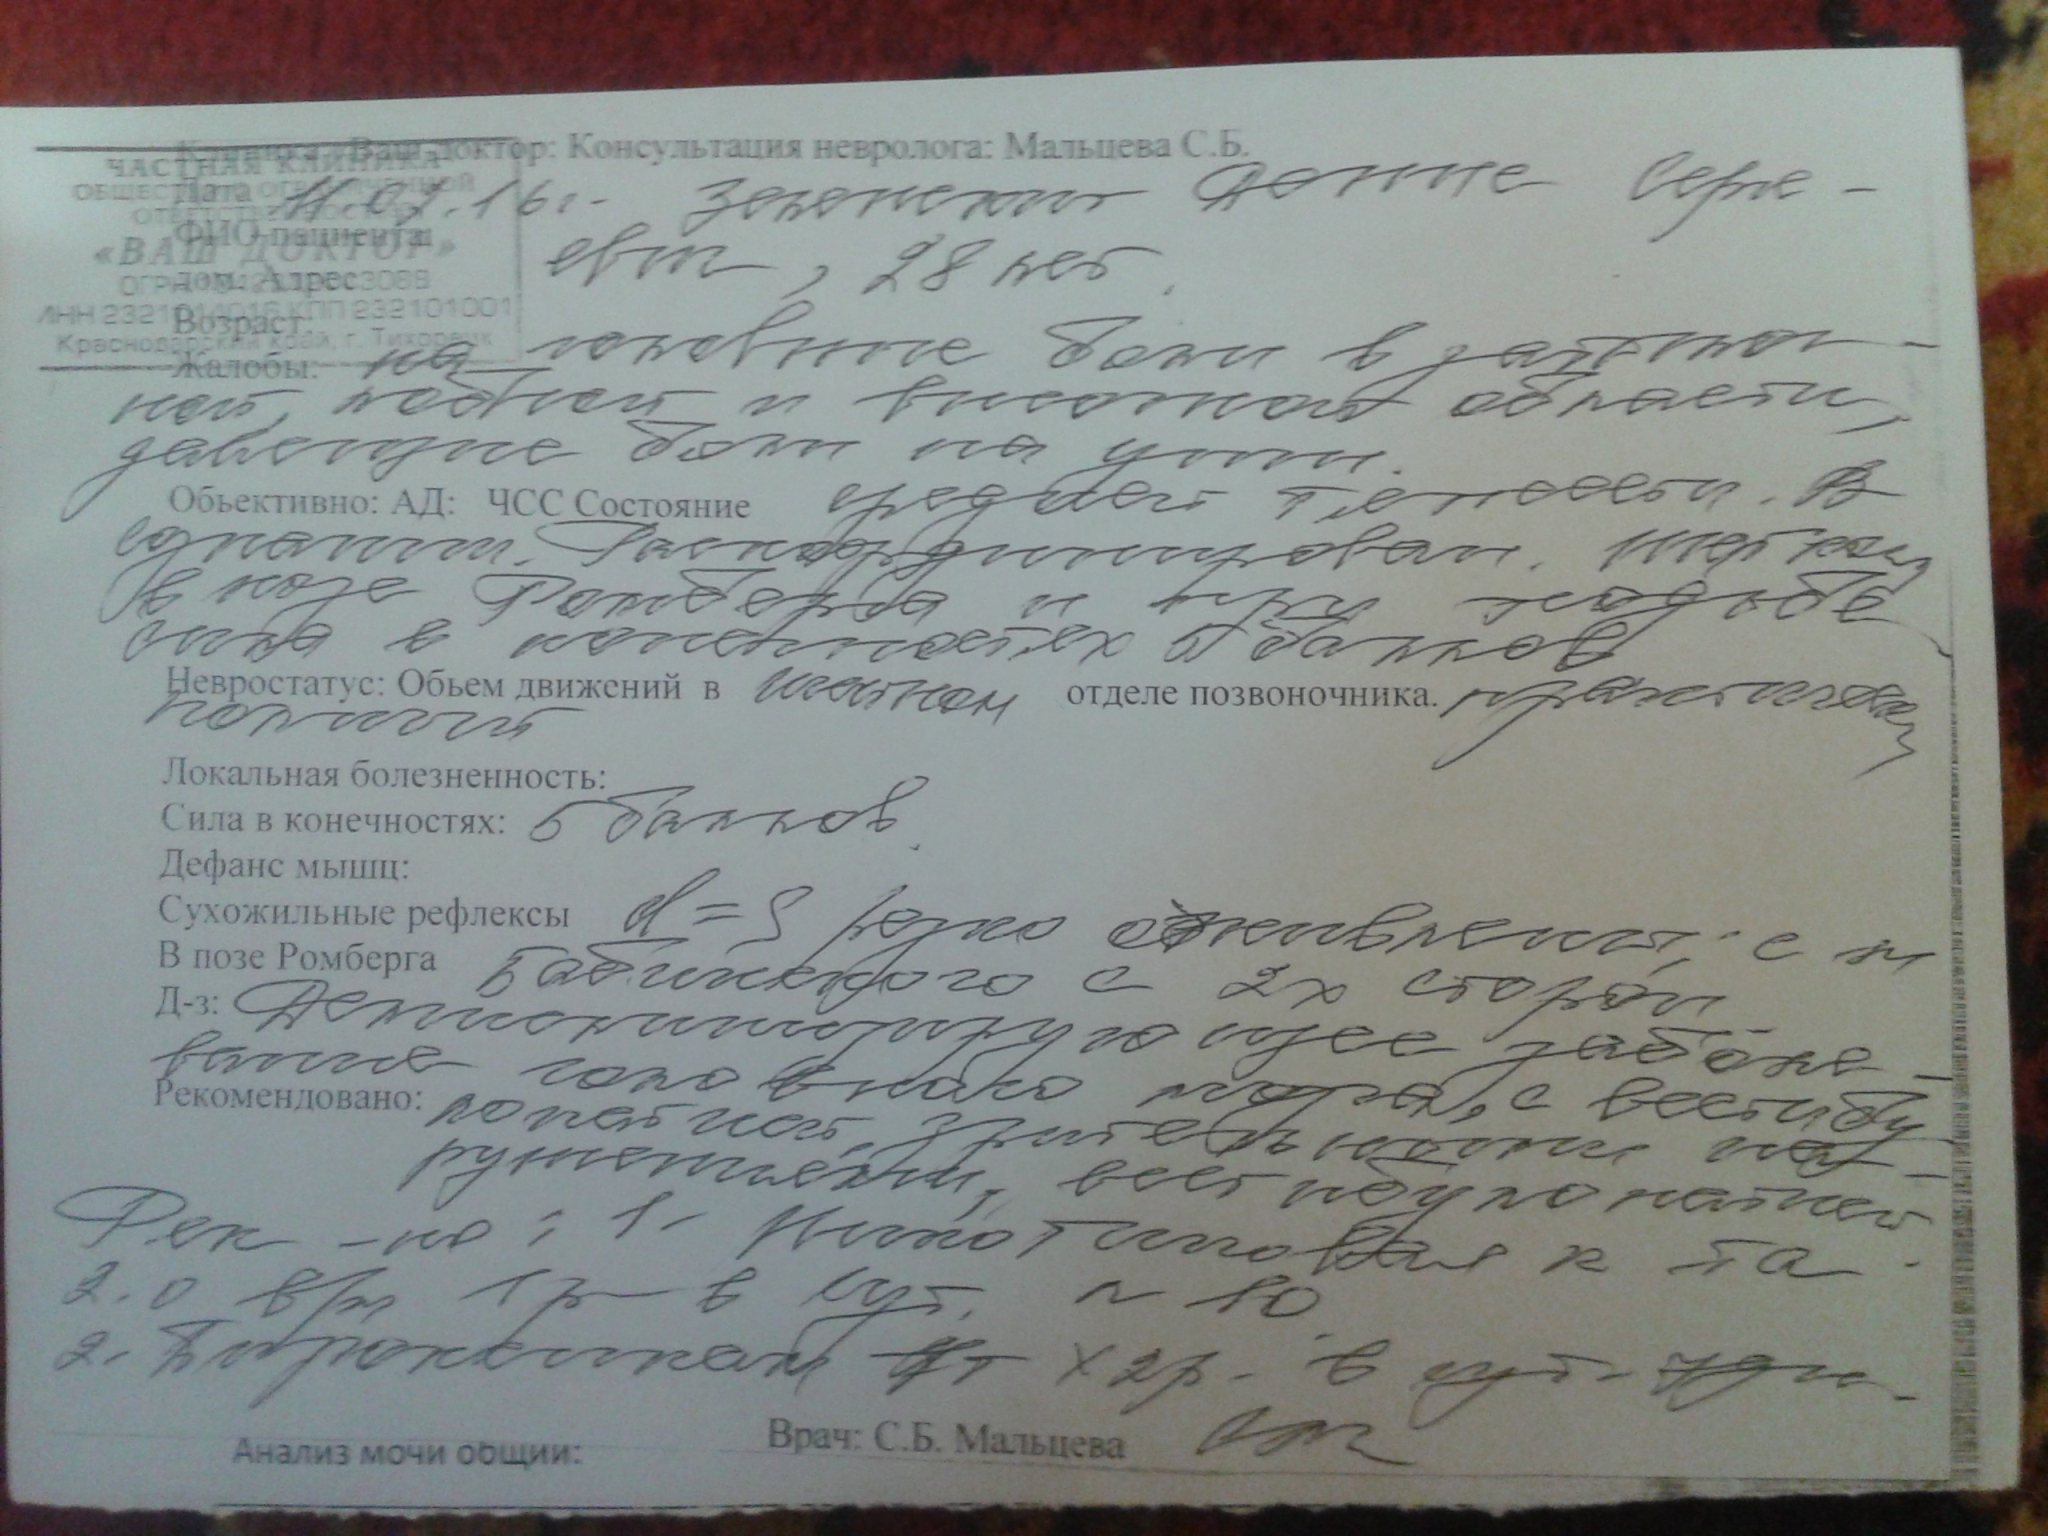 Клиника «Ваш доктор: Консультация невролога: Мальцева С.Б.
ЧАСТНАЯ КЛИНИКА
ОБЩЕСТВО С ОГРАНИЧЕННОЙ
ОТВЕТСТВЕННОСТЬЮ
«ВАШ ДОКТОР»
ИНН 2321014016 КПП 232101001
Краснодарский край, г. Тихорецк
Дата 16г. Серге-
ФИО пациента: евич, 28 лет.
дом. Адрес
Возраст:
Жалобы: на головные боли в затылоч-
ной, лобной и височной области,
давящие боли на уши.
Обьективно: АД: ЧСС Состояние средней тяжести. В
сознании. Раскоординирован. Шаткость
в позе Ромберга и при ходьбе
сила в конечностях 5 баллов
Невростатус: Обьем движений в шейном отделе позвоночника. практически
полный
Локальная болезненность:
Сила в конечностях: 5 баллов.
Дефанс мышц:
Сухожильные рефлексы d=S резко оживлены, с-м
В позе Ромберга Бабинского с 2х сторон
Д-з: Демиелинизирующее заболе-
вание головного мозга, с вестибу
Рекомендовано: лопатией, зрительными на-
рушениями, вестибулопатией
Рек-но: 1. Никотиновая к та
2.0 в/м 1 р в сут. N 10.
2. х 2р. в сут
Врач: С.Б. Мальцева
Анализ мочи общий: